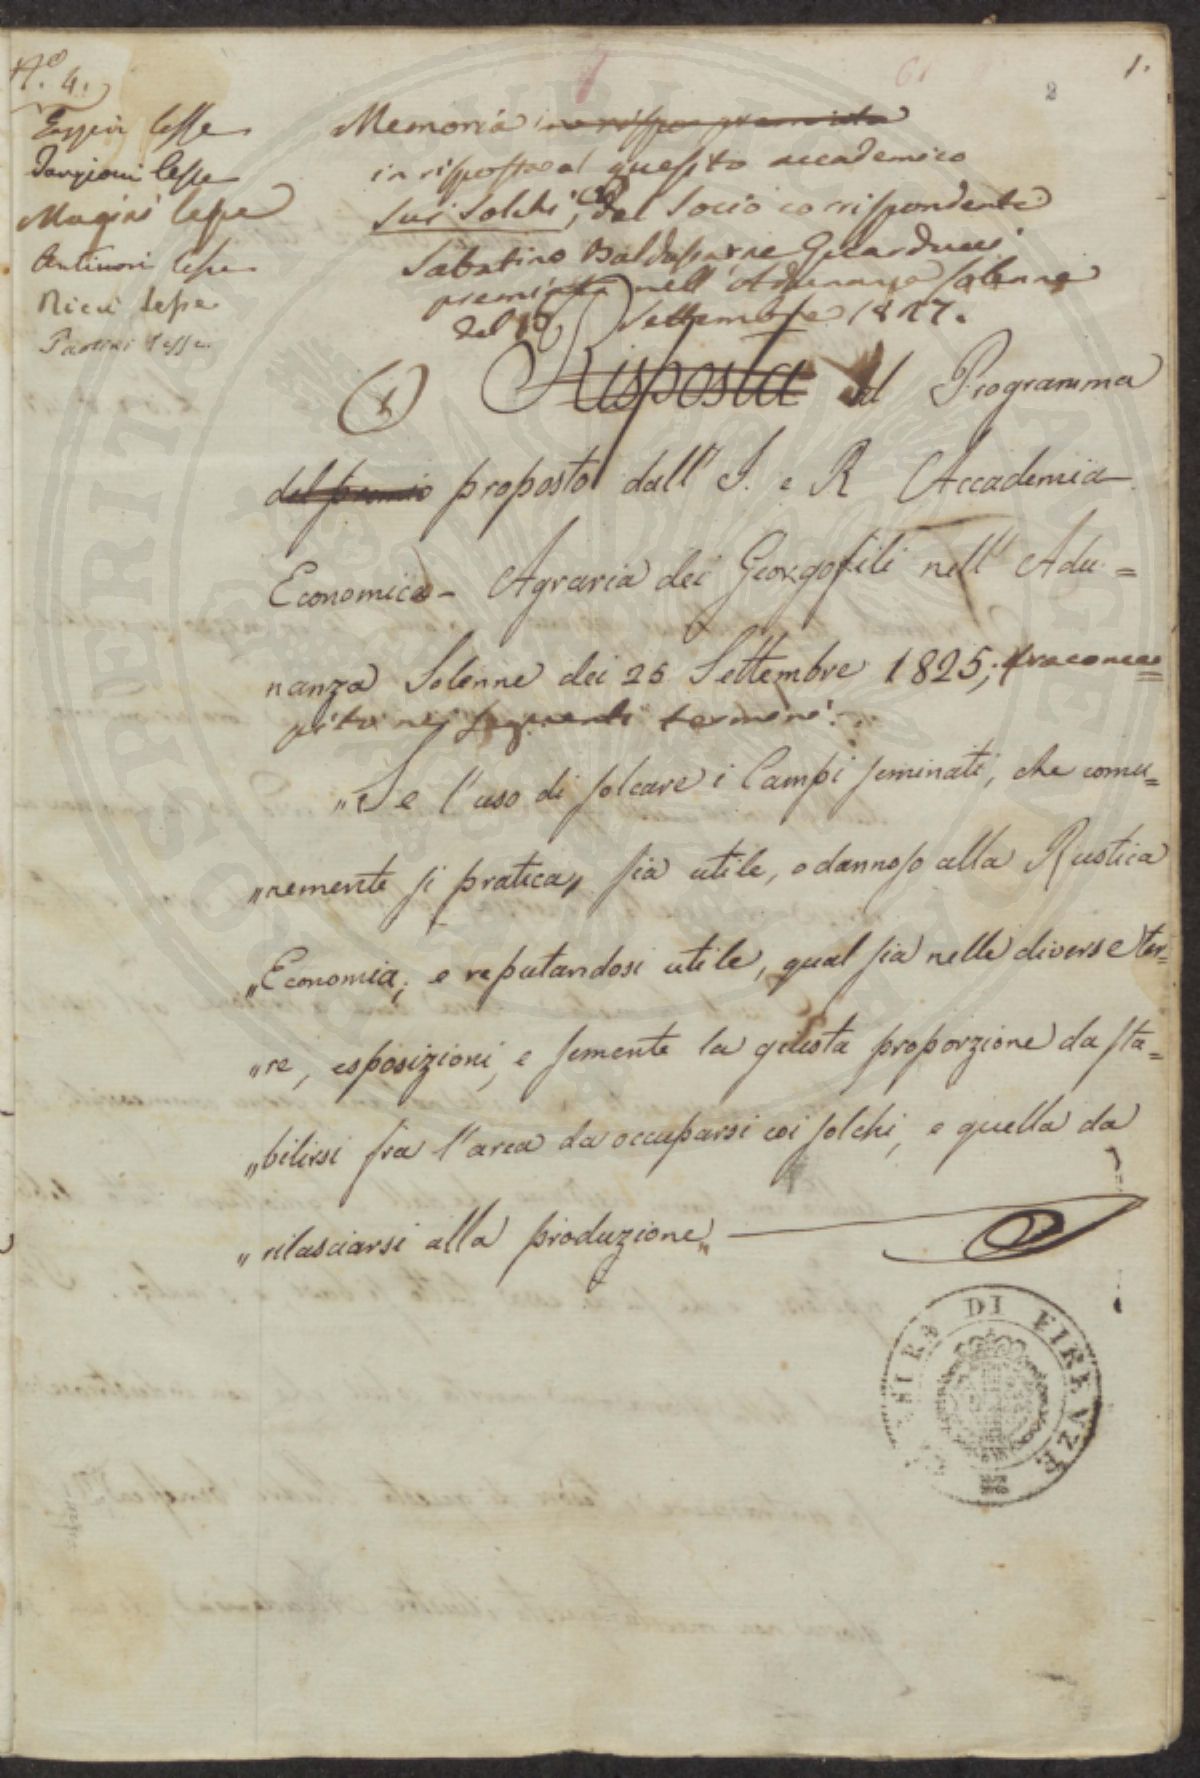 N.º 4.
1.
2
lesse
Targioni lesse
Magini lesse
Antinori lesse
Ricci lesse
lesse
Memoria premiata
in risposta al quesito accademico
sui Solchi, del Socio corrispondente
Sabatino Baldassarre Guarducci
premiata nell'Adunanza solenne
del Settembre 1827.
(1) Risposta al Programma
del premio proposto dall'I. e R. Accademia
Economico-Agraria dei Georgofili nell'Adu=
nanza Solenne dei 25 Settembre 1825;
nei seguenti termini:
"Se l'uso di solcare i Campi seminati, che comu=
"nemente si pratica, sia utile, o dannoso alla Rustica
"Economia; e reputandosi utile, qual sia nelle diverse ter=
"re, esposizioni, e semente la giusta proporzione da sta=
"bilirsi fra l'area da occuparsi coi solchi, e quella da
"rilasciarsi alla produzione"
DI FIRENZE